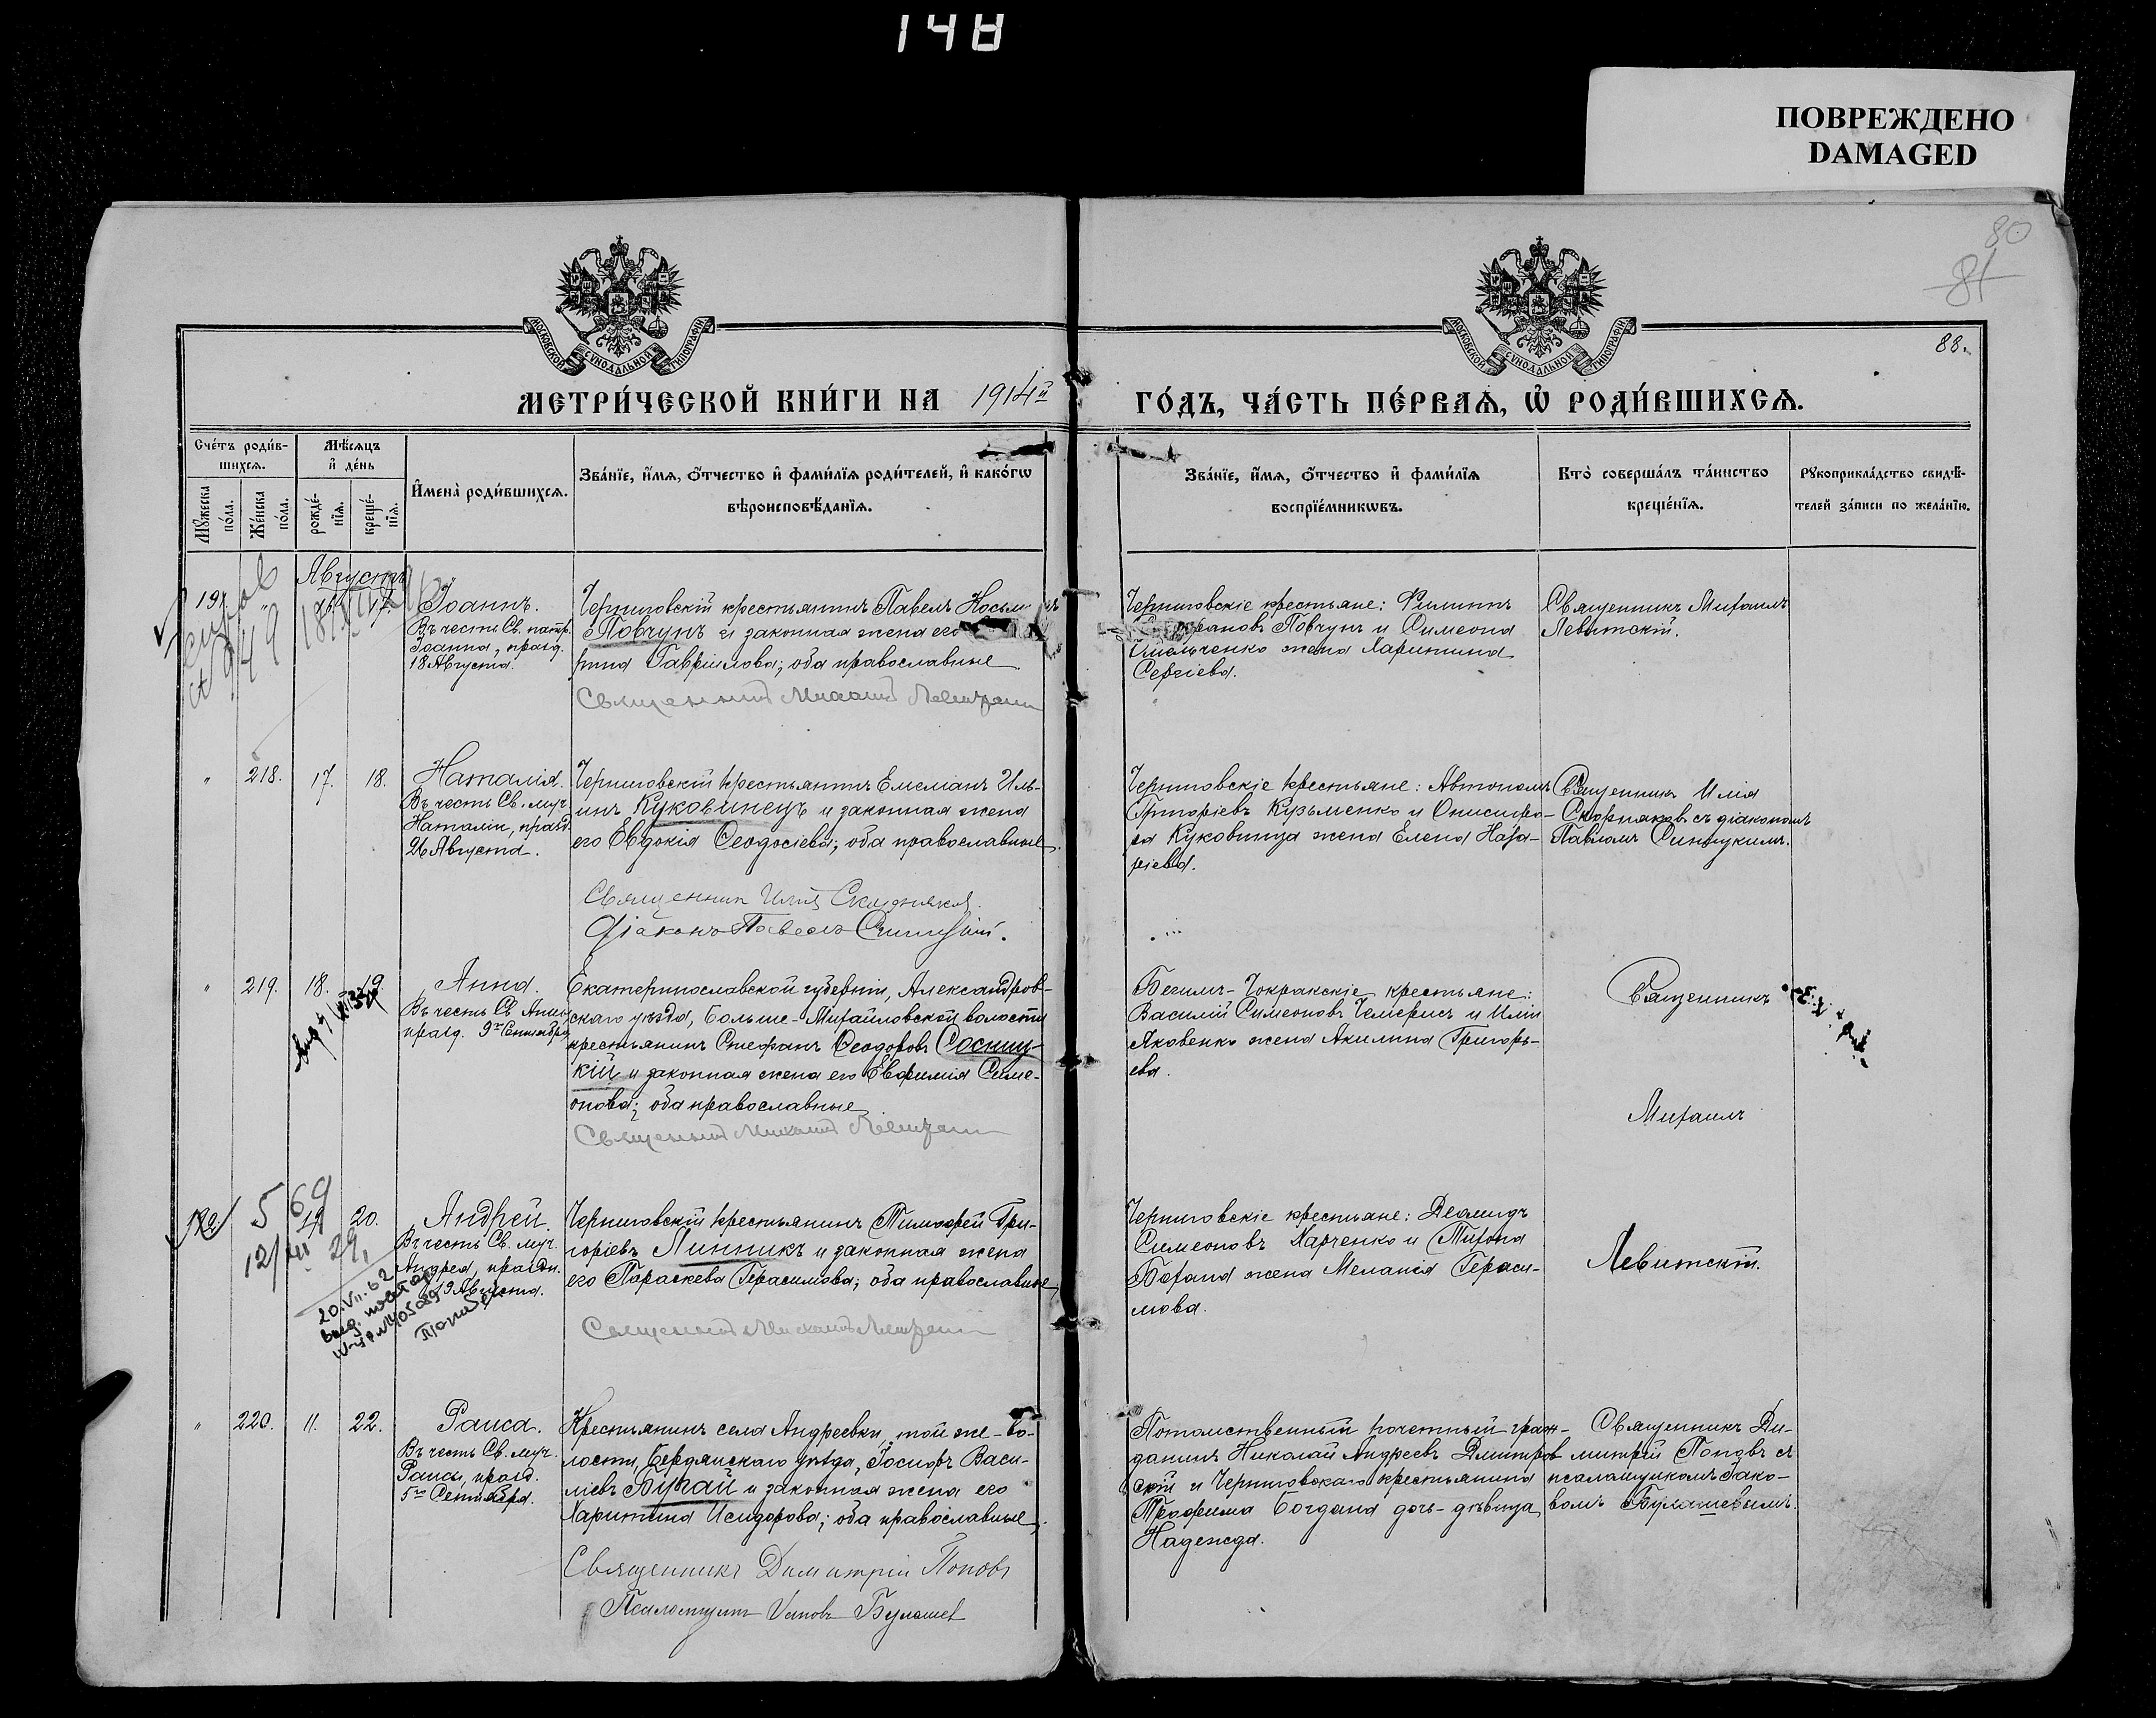 148
ПОВРЕЖДЕНО
DAMAGED
80
81
88.
МОСКОВСКОЙ СѴНОДАЛЬНОЙ ТИПОГРАФІИ
МОСКОВСКОЙ СѴНОДАЛЬНОЙ ТИПОГРАФІИ
МЕТРИ́ЧЕСКОЙ КНИ́ГИ НА 1914й ГО́ДЪ, ЧА́СТЬ ПЕ́РВАѦ, Ѡ҆ РОДИ́ВШИХСѦ.
Счéтъ роди́в-
шихсѧ.
Мꙋжеска
пóла.
Жéнска
пóла.
Мѣ́сяцъ
и҆ дéнь
рождé-
нїѧ.
крещé-
нїѧ.
И҆менà роди́вшихсѧ.
Звáнїе, и҆́мѧ, ѻ҆́тчество и҆ фами́лїѧ роди́телей, и҆ какóгѡ
вѣроисповѣ́данїѧ.
Звáнїе, и҆́мѧ, ѻ҆́тчество и҆ фами́лїѧ
воспрїéмникѡвъ.
Ктò совершáлъ тáинство
крещéнїѧ.
Рꙋкоприклáдство свидѣ́-
телей зáписи по желáнїю.
Августъ
191. " 17.
Іоаннъ.
Въ честь Св. патр.
Іоанна, празд.
18 Августа.
Черниговскій крестьянинъ Павелъ
Повчунъ и законная жена его
рина Гавріилова; оба православные
Священникъ Михаилъ Левитскій
Черниговскіе крестьяне: Филиппъ
Повчунъ и Симеона
Омельченко жена Харитина
Сергіева.
Священникъ Михаилъ
Левитскій.
" 218. 17. 18.
Наталія.
Въ честь Св. муч.
Наталіи, празд.
26 Августа.
Черниговскій крестьянинъ Емеліанъ Иль-
инъ Куковинецъ и законная жена
его Евдокія Ѳеодосіева; оба православные.
Священникъ Илія Скорняковъ
Діаконъ Павелъ Синицкій.
Черниговскіе крестьяне: Автономъ
Григоріевъ Кузьменко и Онисифо-
ра Куковинца жена Елена Наза-
ріева.
Священникъ Илія
Скорняковъ съ діакономъ
Павломъ Синицкимъ.
" 219. 18. 19.
Анна.
Въ честь Св. Анны
празд. 9го Сентября
Екатеринославской губерніи, Александров-
скаго уѣзда, Больше-Михайловской волости
крестьянинъ Стефанъ Ѳеодоровъ Сосниц-
кій и законная жена его Евфимія Симе-
онова; оба православные
Священникъ Михаилъ Левитскій
Бегимъ-Чокракскіе крестьяне:
Василій Симеоновъ Чемерисъ и Иліи
Яковенко жена Акилина Григорь-
ева.
Священникъ
Михаилъ
5 69
12/ 29,
192. 19 20.
Андрей.
Въ честь Св. муч.
Андрея, праздн.
19 Августа.
20.VII.62
Черниговскій крестьянинъ Тимофей Гри-
горіевъ Линникъ и законная жена
его Параскева Герасимова; оба православные
Священникъ Михаилъ Левитскій
Черниговскіе крестьяне: Деомидъ
Симеоновъ Харченко и Тихона
Богана жена Меланія Гераси-
мова.
Левитскій.
" 220. 11. 22.
Раиса.
Въ честь Св. муч.
Раисы, празд.
5го Сентября.
Крестьянинъ села Андреевки, той же во-
лости, Бердянскаго уѣзда, Іосифъ Васи-
ліевъ Бугай и законная жена его
Харитина Исидорова; оба православные.
Священникъ Димитрій Поповъ
Псаломщикъ Булашев
Потомственный почетный граж-
данинъ Николай Андреевъ Дмитров
скій и Черниговскаго крестьянина
Трофима Богдана дочь-дѣвица
Надежда.
Священникъ Ди-
митрій Поповъ съ
псаломщикомъ Іако-
вомъ Булашевымъ.